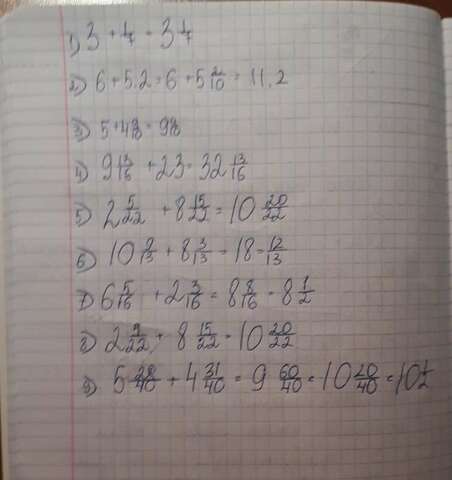 1) 3 + 4 = 34
2) 6 + 5.2 = 6 + 5 2/10 = 11.2
3) 5 + 4 8/10 = 9 8/10
4) 9 13/16 + 23 = 32 13/16
5) 2 5/22 + 8 15/22 = 10 20/22
6) 10 9/13 + 8 3/13 = 18 12/13
7) 6 5/16 + 2 3/16 = 8 8/16 = 8 1/2
8) 2 9/22 + 8 15/22 = 10 20/22
9) 5 28/40 + 4 31/40 = 9 60/40 = 10 20/40 = 10 1/2